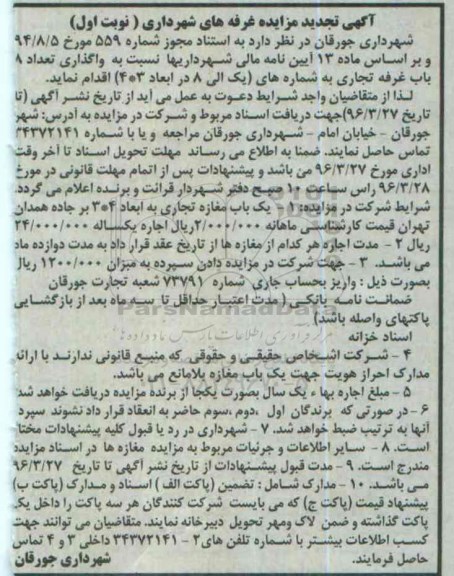 آگهی تجدید مزایده غرفه های شهرداری ( نوبت اول)
شهرداری جورقان در نظر دارد به استناد مجوز شماره ۵۵۹ مورخ ۹۴/۸/۵
و بر اساس ماده ۱۳ آیین نامه مالی شهرداریها نسبت به واگذاری تعداد ۸
باب غرفه تجاری به شماره های (یک الی ۸ در ابعاد ۳*۴) اقدام نماید.
لـذا از متقاضیان واجد شـرایط دعـوت به عمل می آید از تاریخ نشـر آگهی (تا
تاریخ ۹۶/۳/۲۷)جهت دریافت اسـناد مربوط و شـرکت در مزایده به آدرس: شهر
جورقان - خیابان امام - شـهرداری جورقان مراجعه و یا با شـماره ۳۴۳۷۲۱۴۱
تماس حاصل نمایند. ضمنا به اطلاع می رسـاند مهلت تحویل اسـناد تا آخر وقت
اداری مورخ ۹۶/۳/۲۷ می باشد و پیشنهادات پس از اتمام مهلت قانونی در مورخ
۹۶/۳/۲۸ راس سـاعت ۱۰ صبح دفتر شـهردار قرائت و برنـده اعلام می گردد.
شرایط شرکت در مزایده: ۱ - یک باب مغازه تجاری به ابعاد ۴*۳ بر جاده همدان
تهران قیمت کارشناسـی ماهانه ۲/۰۰۰/۰۰۰ ریال اجاره یکسـاله ۲۴/۰۰۰/۰۰۰
ریال ۲ - مدت اجاره هر کدام از مغازه ها از تاریخ عقد قرار داد به مدت دوازده ماه
می باشـد. ۳ - جهت شرکت در مزایده دادن سـپرده به میزان ۱۲۰۰/۰۰۰ ریال
بصورت ذیل : واریز بحساب جاری شماره ۷۳۷۹۱ شعبه تجارت جورقان
ضمانت نامـه بانکـی ( مدت اعتبـار حداقل تا سـه ماه بعد از بازگشـایی
پاکتهای واصله باشد)
اسناد خزانه
۴ - شـرکت اشـخاص حقیقـی و حقوقی که منبـع قانونی ندارنـد با ارائه
مدارک احراز هویت جهت یک باب مغازه بلامانع می باشد.
۵ - مبلغ اجاره بهاء یک سال بصورت یکجا از برنده مزایده دریافت خواهد شد
۶ - در صورتی که برندگان اول ،دوم ،سوم حاضر به انعقاد قرار داد نشوند سپرده
آنها به ترتیب ضبط خواهد شد. ۷ - شهرداری در رد یا قبول کلیه پیشنهادات مختار
است. ۸ - سـایر اطلاعات و جزئیات مربوط به مزایده مغازه ها در اسـناد مزایده
مندرج اسـت. ۹ - مدت قبول پیشـنهادات از تاریخ نشر آگهی تا تاریخ ۹۶/۳/۲۷
مـی باشـد. ۱۰ - مدارک شـامل : تضمین (پاکت الف ) اسـناد و مـدارک (پاکت ب)
پیشنهاد قیمت (پاکت ج) که می بایست شرکت کنندگان هر سه پاکت را داخل یک
پاکت گذاشته و ضمن لاک ومهر تحویل دبیرخانه نمایند. متقاضیان می توانند جهت
کسـب اطلاعات بیشـتر با شـماره تلفن های ۲ - ۳۴۳۷۲۱۴۱ داخلی ۳ و ۴ تماس
حاصل فرمایند. شهرداری جورقان
ParsNamadData